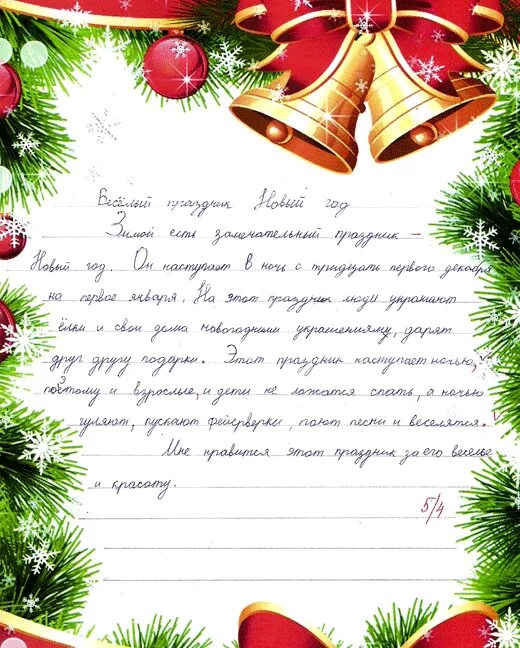 Весёлый праздник Новый год
Зимой есть замечательный праздник –
Новый год. Он наступает в ночь с тридцать первого декабря
на первое января. На этот праздник люди украшают
ёлки и свои дома новогодними украшениями, дарят
друг другу подарки. Этот праздник наступает ночью,
поэтому и взрослые, и дети не ложатся спать, а ночью
гуляют, пускают фейерверки, поют песни и веселятся.
Мне нравится этот праздник за его веселье
и красоту.
5/4